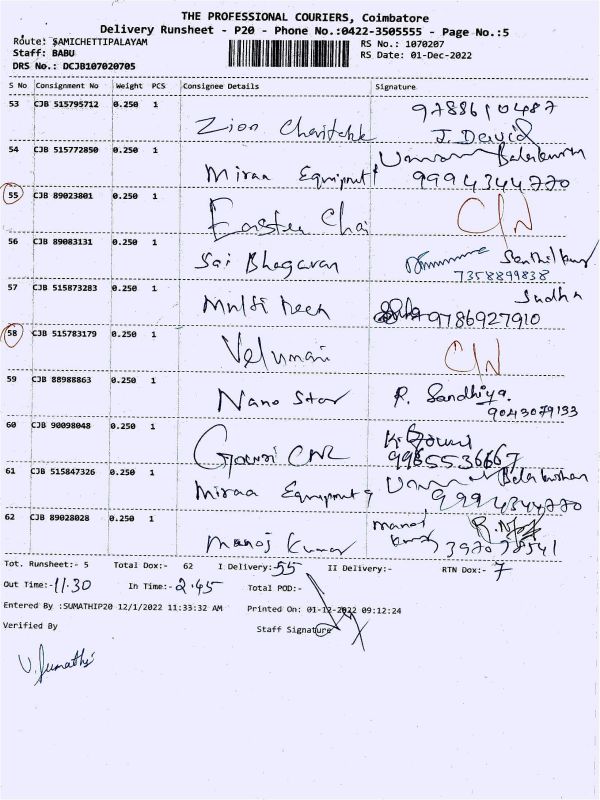 THE PROFESSIONAL COURIERS, Coimbatore
Delivery Runsheet - P20 - Phone No.:0422-3505555 - Page No.:5
Route: SAMICHETTIPALAYAM RS No.: 1070207
Staff: BABU RS Date: 01-Dec-2022
DRS No.: DCJB107020705
S No Consignment No Weight PCS Consignee Details Signature
53 CJB 515795712 0.250 1 Zion 9788610487
J. David
54 CJB 515772850 0.250 1 Miraa Balakrishnan
9994344770
55 CJB 89023801 0.250 1 C/N
56 CJB 89083131 0.250 1 Sai Bhagavan
7358899838
57 CJB 515873283 0.250 1 Sudha
9786927910
58 CJB 515783179 0.250 1 Velumani C/N
59 CJB 88988863 0.250 1 Nano Star R. Sandhiya.
9043079133
60 CJB 90098048 0.250 1
61 CJB 515847326 0.250 1 Miraa Balakrishnan
9994344770
62 CJB 89028028 0.250 1 Manoj Kumar Manoj
Kumar
Tot. Runsheet:- 5 Total Dox:- 62 I Delivery:- 55 II Delivery:- RTN Dox:- 7
Out Time:- 11.30 In Time:- 2.45 Total POD:-
Entered By :SUMATHIP20 12/1/2022 11:33:32 AM Printed On: 01-12-2022 09:12:24
Verified By Staff Signature
V. Sumathi